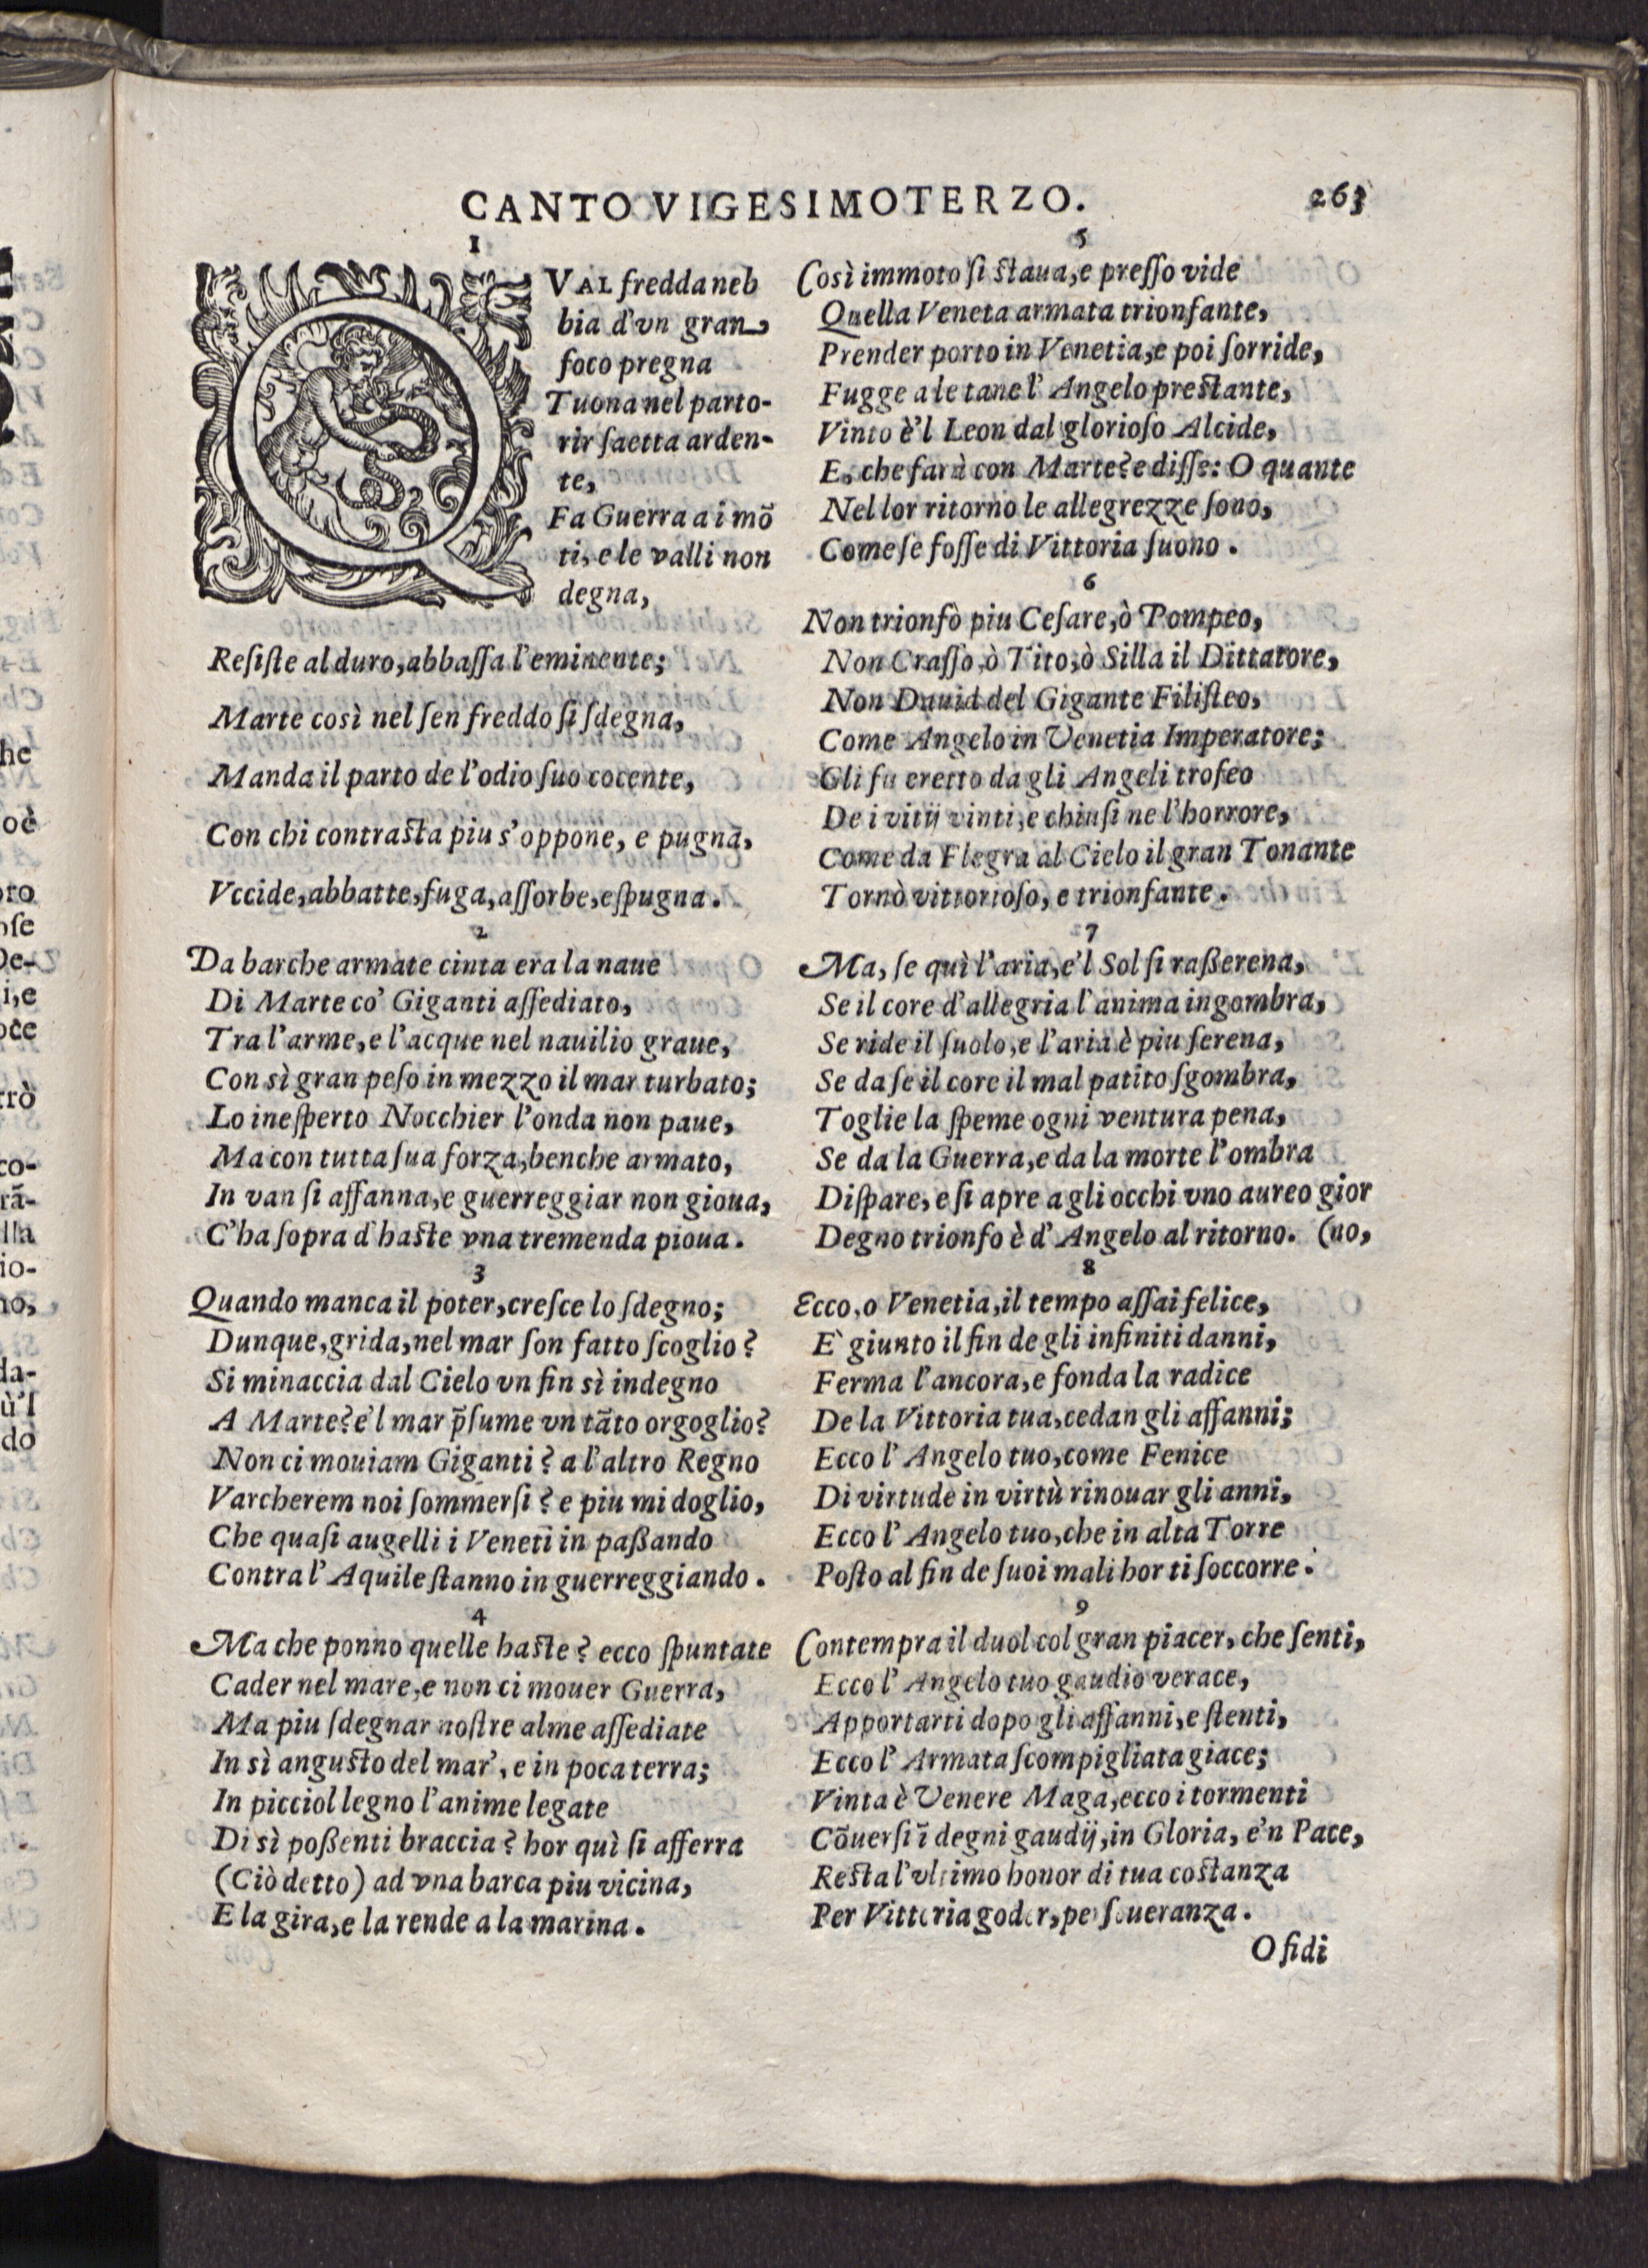 CANTO VIGESIMOTERZO. 263
1
QVAL fredda neb
bia d'vn gran
foco pregna
Tuona nel parto-
rir ſaetta arden-
te,
Fa Guerra a i mõ
ti, e le valli non
degna,
Reſiſte al duro, abbaſſa l'eminente;
Marte così nel ſen freddo ſi ſdegna,
Manda il parto de l'odio ſuo cocente,
Con chi contraſta piu s'oppone, e pugna,
Vccide, abbatte, fuga, aſſorbe, eſpugna.
2
Da barche armate cinta era la naue
Di Marte co' Giganti aſſediato,
Tra l'arme, e l'acque nel nauilio graue,
Con sì gran peſo in mezzo il mar turbato;
Lo ineſperto Nocchier l'onda non paue,
Ma con tutta ſua forza, benche armato,
In van ſi affanna, e guerreggiar non gioua,
C'ha ſopra d'haſte vna tremenda pioua.
3
Quando manca il poter, creſce lo ſdegno;
Dunque, grida, nel mar ſon fatto ſcoglio?
Si minaccia dal Cielo vn fin sì indegno
A Marte? e'l mar p̃ſume vn tãto orgoglio?
Non ci mouiam Giganti? a l'altro Regno
Varcherem noi ſommerſi? e piu mi doglio,
Che quaſi augelli i Veneti in paßando
Contra l'Aquile ſtanno in guerreggiando.
4
Ma che ponno quelle haſte? ecco ſpuntate
Cader nel mare, e non ci mouer Guerra,
Ma piu ſdegnar noſtre alme aſſediate
In sì anguſto del mar, e in poca terra;
In picciol legno l'anime legate
Di sì poßenti braccia? hor quì ſi afferra
(Ciò detto) ad vna barca piu vicina,
E la gira, e la rende a la marina.
5
Così immoto ſi ſtaua, e preſſo vide
Quella Veneta armata trionfante,
Prender porto in Venetia, e poi ſorride,
Fugge a le tane l'Angelo preſtante,
Vinto è'l Leon dal glorioſo Alcide,
E, che farà con Marte? e diſſe: O quante
Nel lor ritorno le allegrezze ſono,
Come ſe foſſe di Vittoria ſuono.
6
Non trionfò piu Ceſare, ò Pompeo,
Non Craſſo, ò Tito, ò Silla il Dittatore,
Non Dauid del Gigante Filiſteo,
Come Angelo in Venetia Imperatore;
Gli fu eretto da gli Angeli trofeo
De i vitij vinti, e chiuſi ne l'horrore,
Come da Flegra al Cielo il gran Tonante
Tornò vittorioſo, e trionfante.
7
Ma, ſe quì l'aria, e'l Sol ſi raßerena,
Se il core d'allegria l'anima ingombra,
Se ride il ſuolo, e l'aria è piu ſerena,
Se da ſe il core il mal patito ſgombra,
Toglie la ſpeme ogni ventura pena,
Se da la Guerra, e da la morte l'ombra
Diſpare, e ſi apre a gli occhi vno aureo gior
Degno trionfo è d'Angelo al ritorno. (no,
8
Ecco, o Venetia, il tempo aſſai felice,
È giunto il fin de gli infiniti danni,
Ferma l'ancora, e fonda la radice
De la Vittoria tua, cedan gli affanni;
Ecco l'Angelo tuo, come Fenice
Di virtude in virtù rinouar gli anni,
Ecco l'Angelo tuo, che in alta Torre
Poſto al fin de ſuoi mali hor ti ſoccorre.
9
Contempra il duol col gran piacer, che ſenti,
Ecco l'Angelo tuo gaudio verace,
Apportarti dopo gli affanni, e ſtenti,
Ecco l'Armata ſcompigliata giace;
Vinta è Venere Maga, ecco i tormenti
Cõuerſi ĩ degni gaudij, in Gloria, e'n Pace,
Reſta l'vltimo honor di tua coſtanza
Per Vittoria goder, perſeueranza.
O fidi